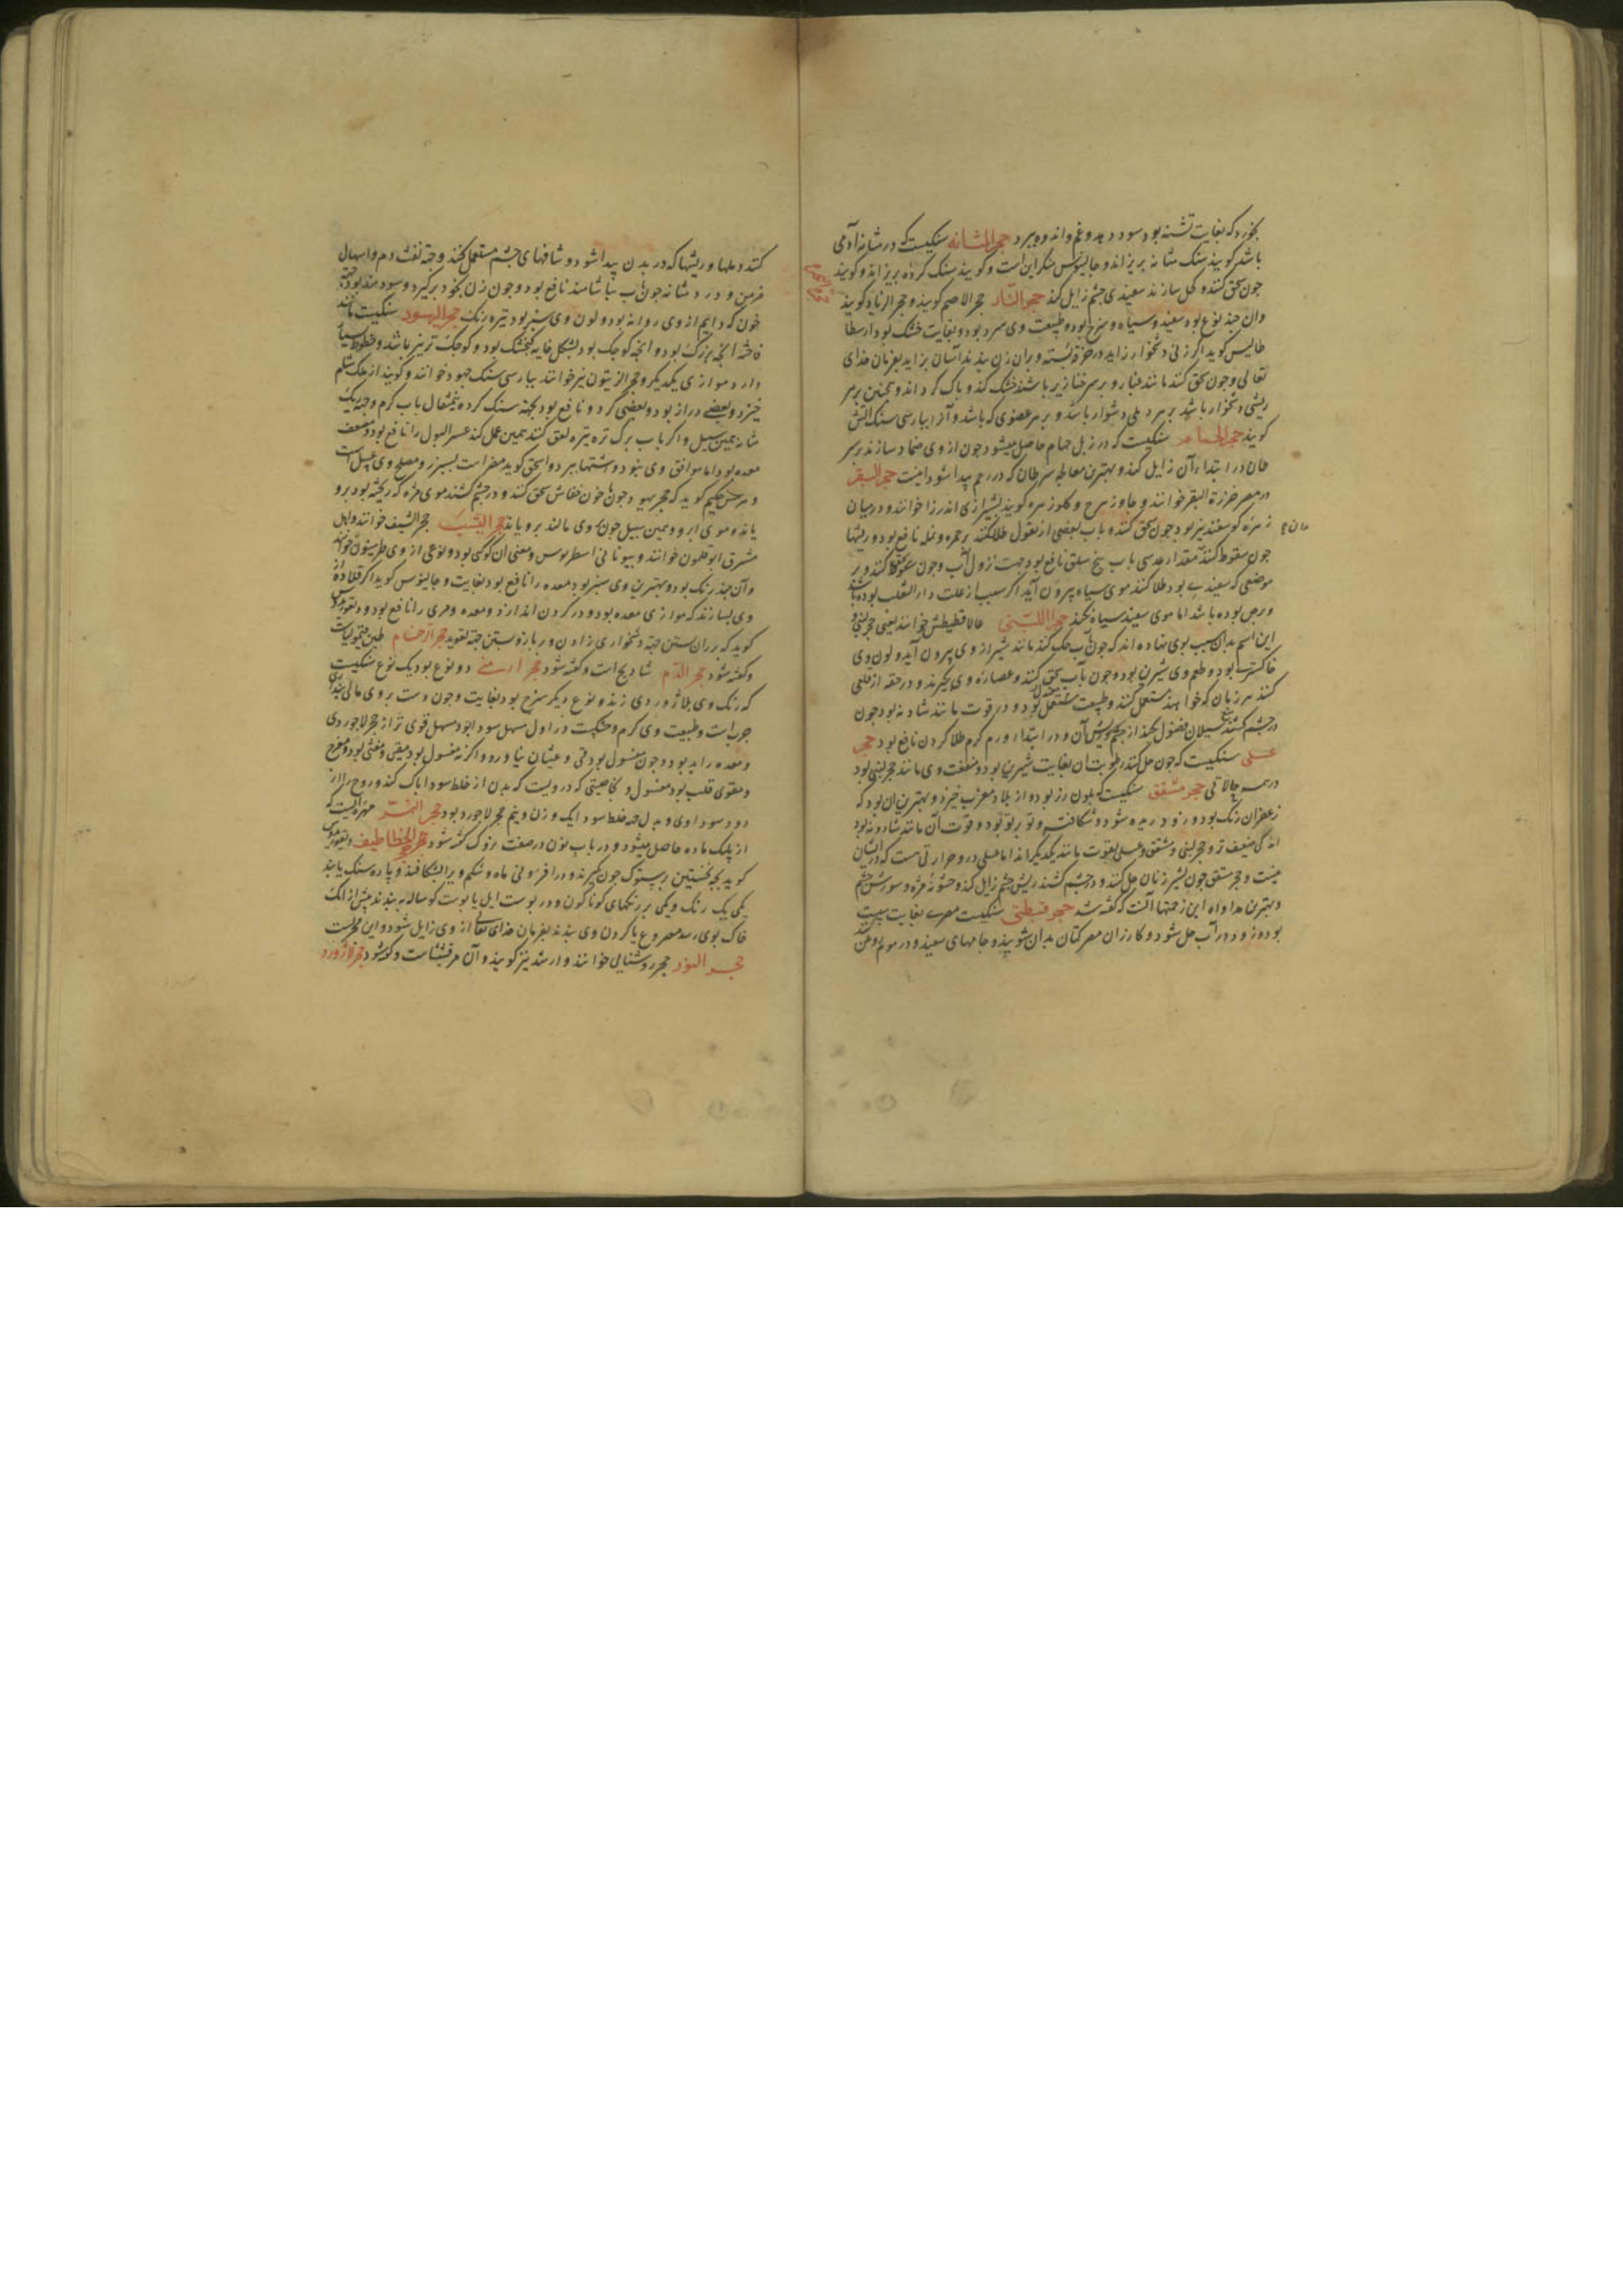 بخورد که بغایت تشنه بود سود دهد و غم و اندوه ببرد حجر المثانه سنکیست که در مثانه آدمی
باشد کویند سنک مثانه بریزاند و جالینوس منکر این است و کویند سنک کرده بریزاند و کویند
جون سحق کنند و کحل سازند سفیدی جشم زایل کند حجر النار حجر الاصم کویند و حجر الزناد کویند
وان جند نوع بود سفید و سیاه و سرخ بود و طبیعت وی سرد بود و بغایت خشک بود ارسطا
طالیس کوید اکر زنی دشخوار زاید در خرقه بسته بر ران زن بندند آسان بزاید بفرمان خدای
تعالی و جون سحق کنند مانند غبار و بر سر خنازیر باشند خشک کند و باک کرداند و همجنین بر هر
ریشی دشخوار باشد ببرد و بر هر عضوی که باشد و آنرا ببارسی سنک آتش
کویند حجر الحمام سنکیست که در زبل حمام حاصل میشود جون از وی ضماد سازند بر سر
طان در ابتداء آن زایل کند و بهترین معالجه سرطان که در رحم پیدا شود اینست حجر البقر
در مصر خرزة البقر خوانند و جاوزهرج و کاوزهره کویند بشیرازی اندرزا خوانند و در میان
زهره کوسفند نیز بود جون سحق کنند و باب بعضی از بقول طلا کنند بر حمره و نمله نافع بود و ریشها
جون سعوط کنند مقدار عدسی باب بیخ سلق نافع بود جهت نزول آب و جون سحق کنند و بر
موضعی که سفید بود طلا کنند موی سیاه بیرون آید اکر سبب از علت داء الثعلب بوده باشد
و برص بوده باشد اما موی سفید سیاه نکند حجر اللبنی غالاقطیطش خوانند یعنی حجر لبنی و
این اسم بدان سبب بوی نهاده اند که جون آب حک کنند مانند شیر از وی بیرون آید و لون وی
خاکستری بود و طعم وی شیرین بود و جون بآب سحق کنند و عصاره وی بکیرند و در حقه از قلعی
کنند هر زمان که خواهند مستعمل کنند و طبیعت معتدل بود و در قوت مانند شادنه بود جون
در جشم کشند منع سیلان فضول بکند از جشم و ریش آن و در ابتداء ورم کرم طلا کردن نافع بود حجر
عسلی سنکیست که جون حل کنند رطوبت آن بغایت شیرین بود و منفعت وی مانند حجر لبنی بود
در همه حالاتی حجر مشقق سنکیست که بلون زرد بود و از بلاد مغرب خیزد و بهترین آن بود که
زعفران رنک بود و زود ریزه شود و شکافته و تو بر تو بود و قوت آن مانند شادنه بود
اندکی ضعیف تر و حجر لبنی و مشقق و عسلی بقوت مانند یکدیکراند اما عسلی در و حرارتی هست که در ایشان
نیست و حجر مشقق جون بشیر زنان حل کنند و در جشم کشند ریش جشم زایل کند و خشونة مژه و سوزش جشم
و بهترین مداواه این زحمتها آنست که کفته شد حجر قبطی سنکیست مصری بغایت سست
بود و زود در آب حل شود و کازران مصر کتان بدان شویند و جامهای سفید و در موم روغن
کنند دملها و ریشها که در بدن پیدا شود و شافهای جشم مستعمل کنند و جهة نفث دم و اسهال
مزمن و درد مثانه جون بآب بیاشامند نافع بود و جون زن بخود برکیرد سودمند بود جهة
خون که دایم از وی روانه بود و لون وی سبز بود تیره رنک حجر الیهود سنکیست مانند
فاخته انجه بزرک بود و انجه کوجک بود بشکل خایه کنجشک بود و کوجک تر نیز باشد و خطوط سیاه
دارد موازی یکدیکر و حجر الزیتون نیز خوانند ببارسی سنک جهود خوانند و کویند از ملک شام
خیزد و بعضی دراز بود و بعضی کرد و نافع بود جهة سنک کرده نیم مثقال باب کرم و جهة ریک
مثانه همین سبیل و اکر باب برک تره تیزه لعق کنند همین عمل کند عسر البول را نافع بود و مضعف
معده بود اما موافق وی نبود و اشتها ببرد و اسحق کوید مضر است بسپرز و مصلح وی عسل است
و حکیم کوید که حجر یهود جون با خون خفاش سحق کنند و در جشم کشند موی مژه که ریخته بود بروید
یانه و موی ابرو و همین سبیل جون بر وی مالند برویاند حجر الیشب حجر الیشف خوانند و اهل
مشرق ابوقلمون خوانند و بیونانی اسطریوس و معنی آن کوکبی بود و نوعی از وی طرسیون خوانند
و آن جند رنک بود و بهترین وی سبز بود معده را نافع بود بغایت و جالینوس کوید اکر قلاده از
وی بسازند که موازی معده بود و در کردن اندازند و معده و مری را نافع بود و دیسقوریدوس
کوید که بر ران بستن جهة دشخواری زادن و بر بازو بستن جهة تعوید حجر الرخام طین قیمولیاست
و کفته شود حجر الدم شادنج است و کفته شود حجر ارمنی دو نوع بود یک نوع سنکیست
که رنک وی بلاژوردی زند و نوع دیکر سرخ بود بغایت و جون دست بر وی مالی بنداری
جرب است و طبیعت وی کرم و خشکست در اول مسهل سودا بود مسهل قوی تر از حجر لاجوردی
و معده را بد بود و جون مغسول بود قی و غثیان نیاورد و اکر نه مغسول بود مقیئ و مغثی بود و مفرح
و مقوی قلب بود مغسول و بخاصیتی که در ویست که بدن از خلط سودا باک کند و روح را از
دود سوداوی و بدل جهة خلط سودا یک وزن و نیم حجر لاجورد بود حجر النسر مهره ایست که
از پلنک ماده حاصل میشود و در باب نون در صفت نزوک کفته شود حجر الخطاطیف دیسقوریدس
کوید بجه نخستین پرستوک جون بکیرند و در افزونی ماه و شکم ویرا بشکافند دو پاره سنک یابند
یکی یک رنک و یکی بر رنکهای کوناکون و در بوست ایل یا بوست کوساله ببندند پیش از آنک
خاک بوی رسد مصروع با کردن وی بندند بفرمان خدای تعالی از وی زایل شود و این مجربست
حجر النور حجر روشنایی خوانند و ارشد نیز کویند و آن مرقشیثا است و کفته شود حجر لاژورد